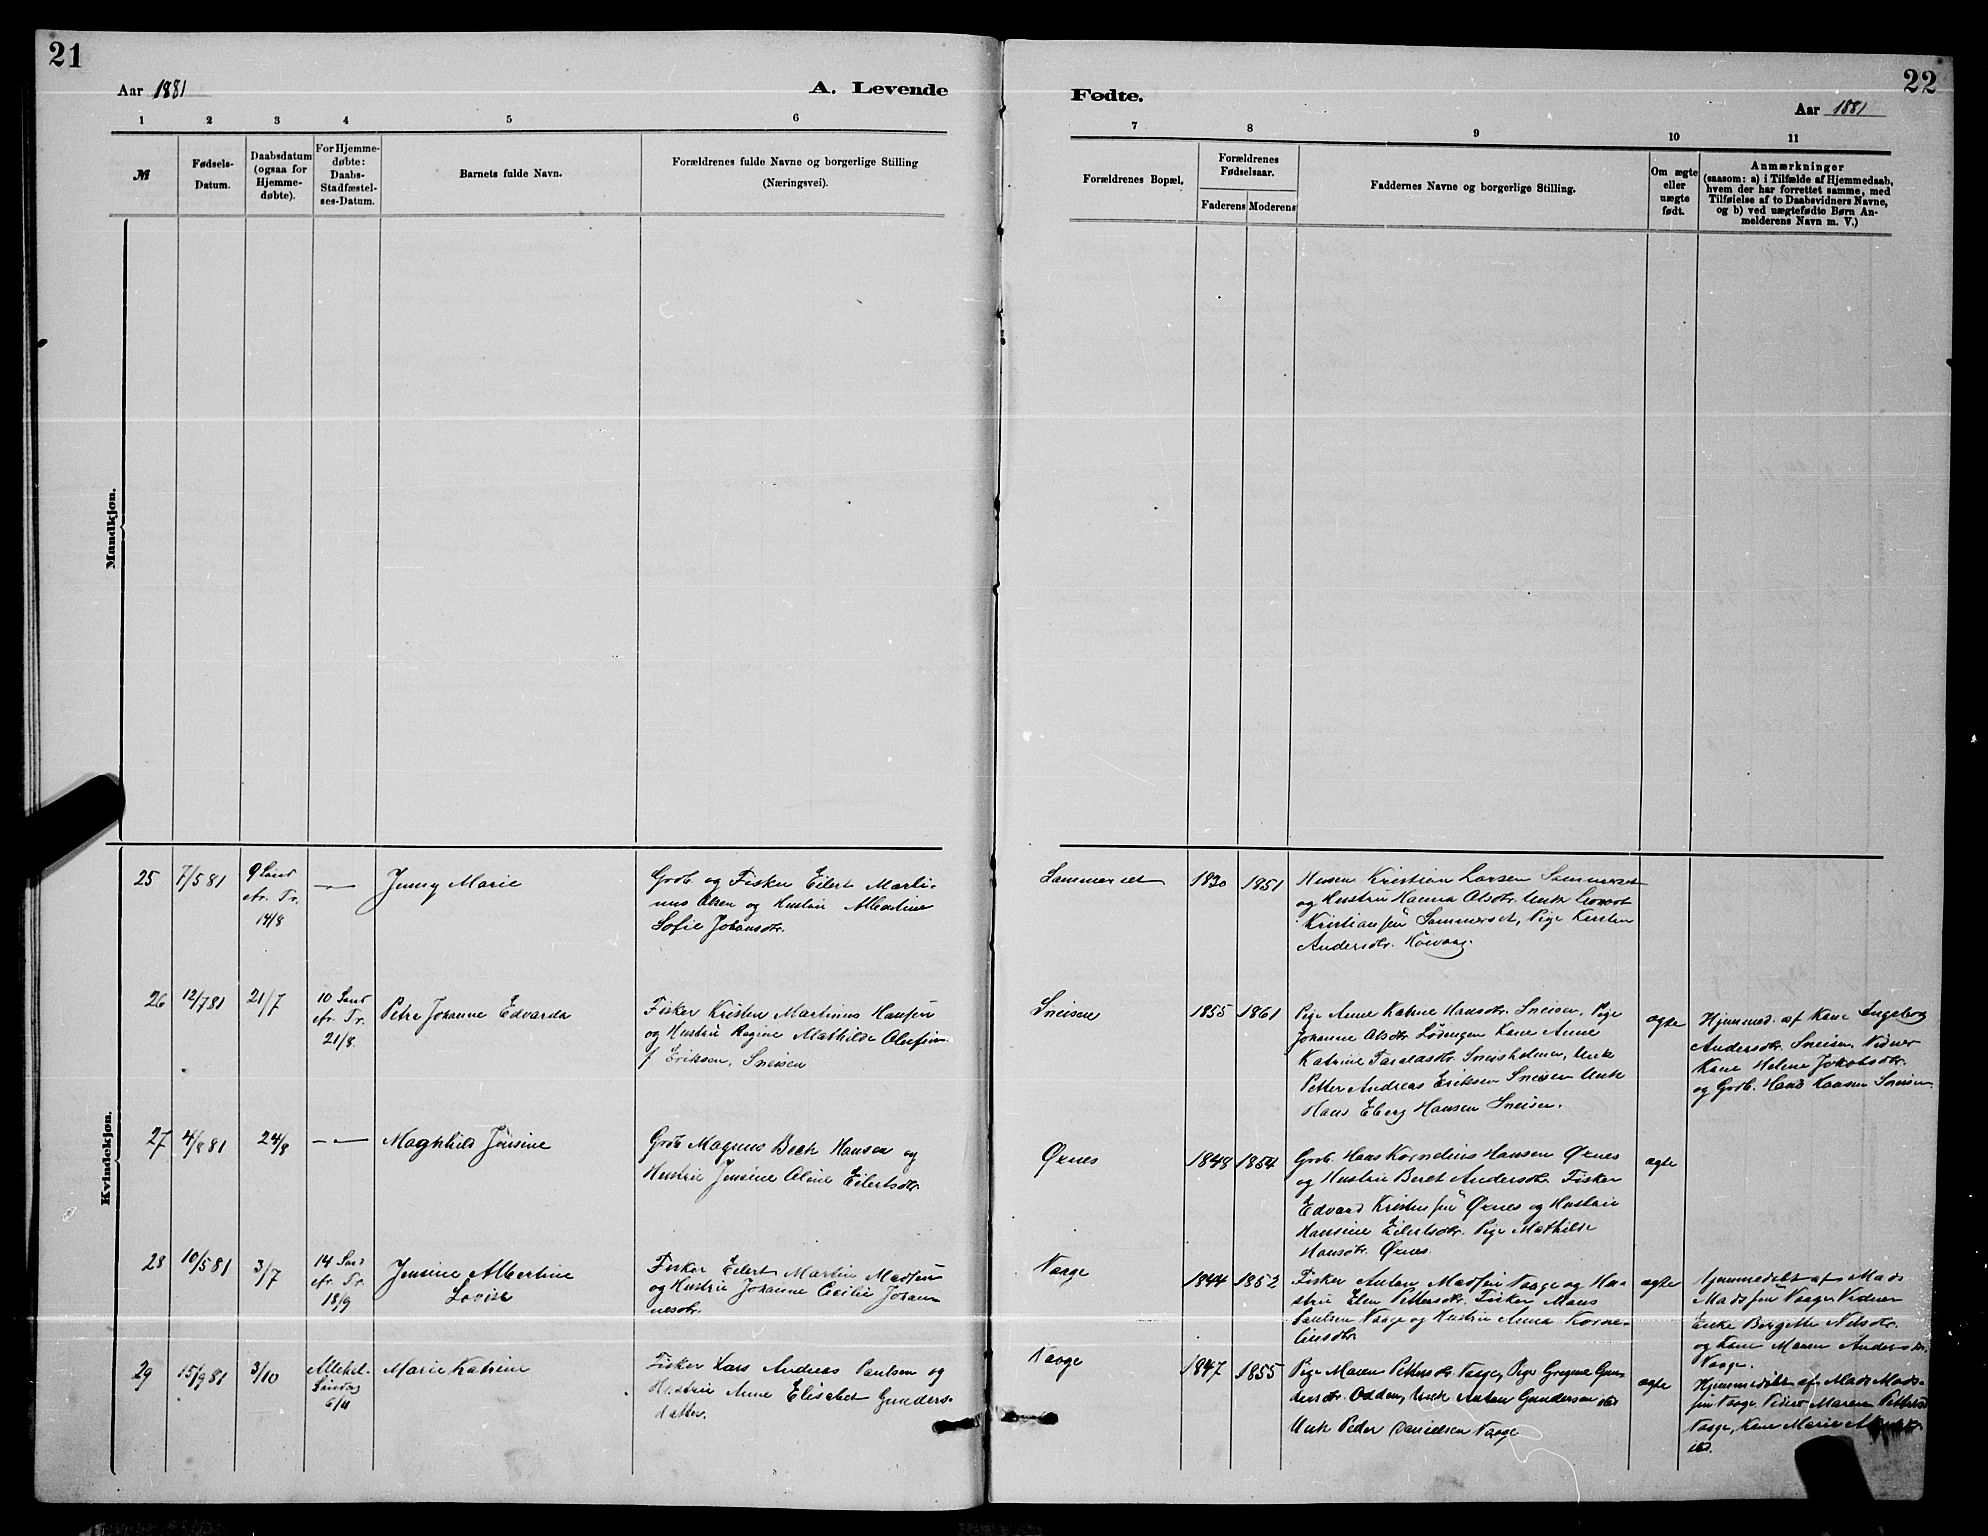 21
Aar 1881
A. Levende
1 2 3 4 5 6
№
Fødsels-
Datum.
Daabsdatum
(ogsaa for
Hjemme-
døbte).
For Hjemme-
døbte:
Daabs-
Stadfæstel-
ses-Datum.
Barnets fulde Navn.
Forældrenes fulde Navne og borgerlige Stilling
(Næringsvei).
Mandkjøn.
Kvindekjøn.
25 7/5 81
9 Sønd
eft. Tr.
14/8
—
Jenny Marie
Grdb og Fisker Eilert Marti-
nus Olsen og Hustru Albertine
Sofie Johansdtr.
26 12/7 81 21/7
10 Sønd
eft. Tr.
21/8
Petra Johanne Edvarda
Fisker Kristen Martinus Hansen
og Hustru Regine Mathilde Olufine
f. Eriksen, Sneisen
27 4/8 81 24/8 — —
Maghhild Jensine
Grdb Magnus Beck Hansen og
Hustru Jensine Oline Eilertsdtr.
28 10/5 81 3/7
14 Sønd
eft. Tr.
18/9
Jensine Albertine
Lovise
Fisker Eilert Martin Madsen
og Hustru Johanne Cecilie Johan-
nesdtr.
29 15/9 81 3/10
Allehel-
Søndag
6/11
Marie Katrine
Fisker Lars Andreas Paulsen og
Hustru Anne Elisabet Gunders-
datter.
22
Fødte.
Aar 1881
7 8 9 10 11
Forældrenes Bopæl.
Forældrenes
Fødselsaar.
Faderens Moderens
Faddernes Navne og borgerlige Stilling.
Om ægte
eller
uægte
født.
Anmærkninger
(saasom: a) i Tilfælde af Hjemmedaab,
hvem der har forrettet samme, med
Tilføielse af to Daabsvidners Navne,
og b) ved uægtefødte Børn An-
melderens Navn m. V.)
Sammerset 1830 1851
Kristian Larsen Sammerset
og Hustru Hanna Olsdtr. Unk
Kristiansen Sammerset, Pige Kersten
Andersdtr.
Sneisen 1855 1861
Pige Anne Katrine Hansdtr. Sneisen, Pige
Johanne Olsdtr. Lødingen Kone Anne
Katrine Sneisholmen, Unk
Petter Andreas Eriksen Sneisen Unk
Hans Eberg Hansen Sneisen.
ægte
Hjemmed. af Kone Ingeborg
Andersdtr. Sneisen, Vidner
Kone Helene Jakobsdtr.
og Grdb. Hans Hansen Sneisen
Øxnes 1848 1854
Grdb. Hans Kornelius Hansen Øxnes
og Hustru Beret Andersdtr. Fisker
Edvard Kristensen Øxnes og Hustru
Hansine Eilertsdtr. Pige Mathilde
Hansdtr. Øxnes.
ægte
Vaage 1844 1852
Fisker Anton Madsen Vaage og Hu-
stru Elen Pettersdtr. Fisker Mons
Paulsen Vaage og Hustru Anna Korne-
liusdtr.
ægte
Hjemmedøbt af Mads
Madsen Vaage, Vidner
Enke Bergitte Nilsdtr.
og Kone Maren Andersdtr.
Vaage.
Vaage 1847 1855
Pige Maren Pettersdtr Vaage, Pige Gregine Gun-
dersdtr. Odden, Unk Anton Gundersen ibd
Unk Peder Danielsen Vaage
ægte
Hjemmedøbt af Mads Mad-
sen Vaage. Vidner Maren Pettersd
Vaage, Kone Marie
ibd.